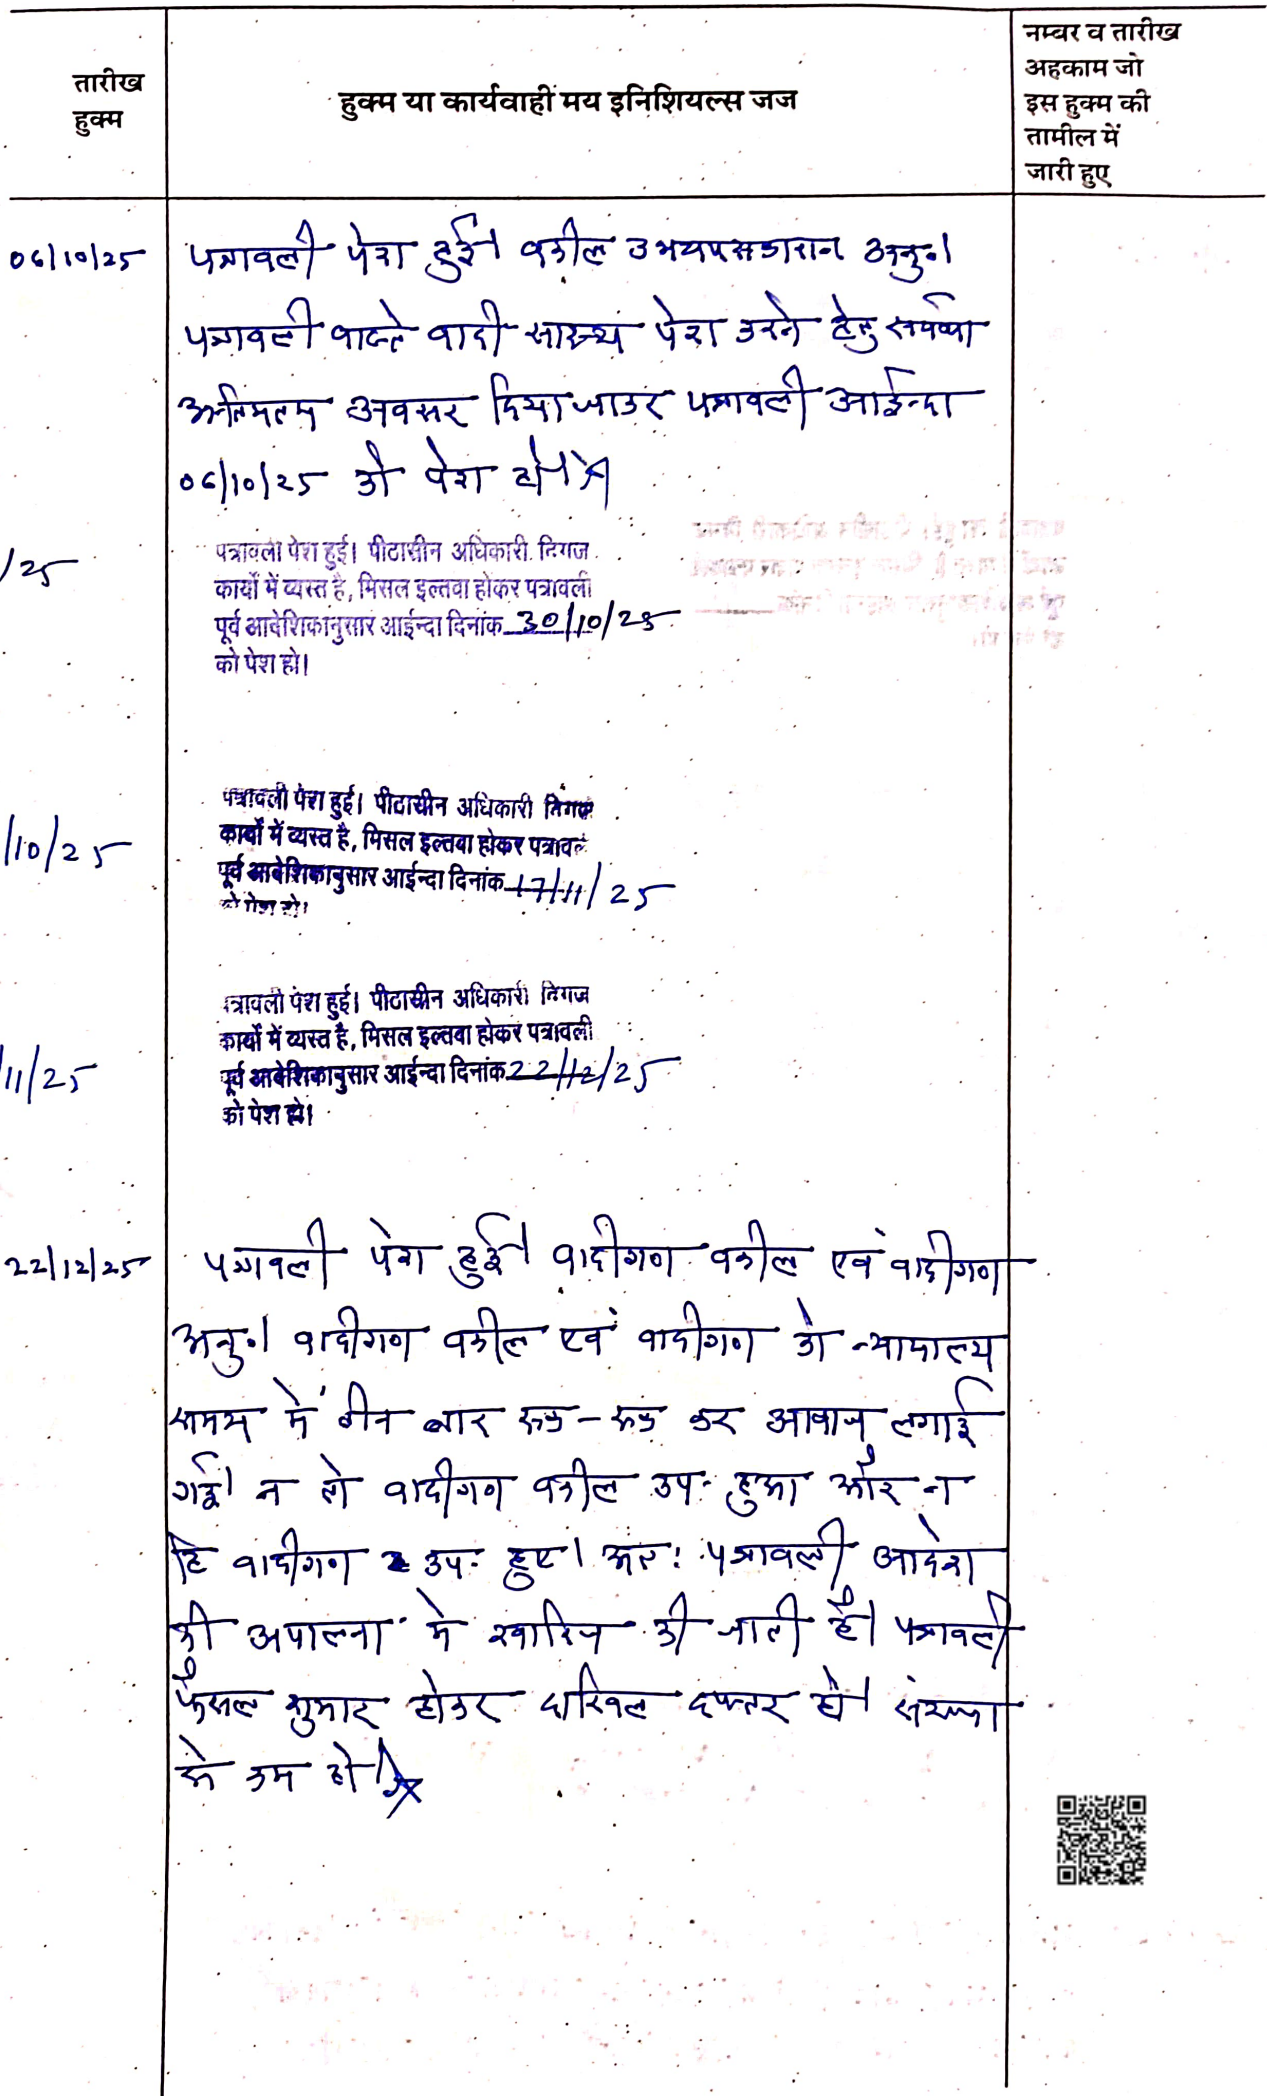 तारीख
हुक्म
हुक्म या कार्यवाही मय इनिशियल्स जज
नम्बर व तारीख
अहकाम जो
इस हुक्म की
तामील में
जारी हुए
06/10/25
पत्रावली पेश हुई। वकील उभयपक्षकारान अनु०।
पत्रावली वास्ते वादी साक्ष्य पेश करने हेतु
अन्तिमतम अवसर दिया जाकर पत्रावली आईन्दा
06/10/25 को पेश हो।
/25
पत्रावली पेश हुई। पीठासीन अधिकारी निगज
कार्यो में व्यस्त है, मिसल इल्तवा होकर पत्रावली
पूर्व आदेशिकानुसार आईन्दा दिनांक 30/10/25
को पेश हो।
/10/25
पत्रावली पेश हुई। पीठासीन अधिकारी निगज
कार्यो में व्यस्त है, मिसल इल्तवा होकर पत्रावल
पूर्व आदेशिकानुसार आईन्दा दिनांक 17/11/25
को पेश हो।
/11/25
त्रावली पेश हुई। पीठासीन अधिकारी निगज
कार्यो में व्यस्त है, मिसल इल्तवा होकर पत्रावली
पूर्व आदेशिकानुसार आईन्दा दिनांक 22/12/25
को पेश हो।
22/12/25
पत्रावली पेश हुई। वादीगण वकील एवं वादीगण
अनु०। वादीगण वकील एवं वादीगण को न्यायालय
समय में तीन बार रुक - रुक कर आवाज लगाई
गई। न तो वादीगण वकील उप० हुआ और न
हि वादीगण उप० हुए। अतः पत्रावली आदेश
की अपालना में खारिज की जाती है। पत्रावली
फैसल शुमार होकर दाखिल दफ्तर हो। संख्या
से कम हो।